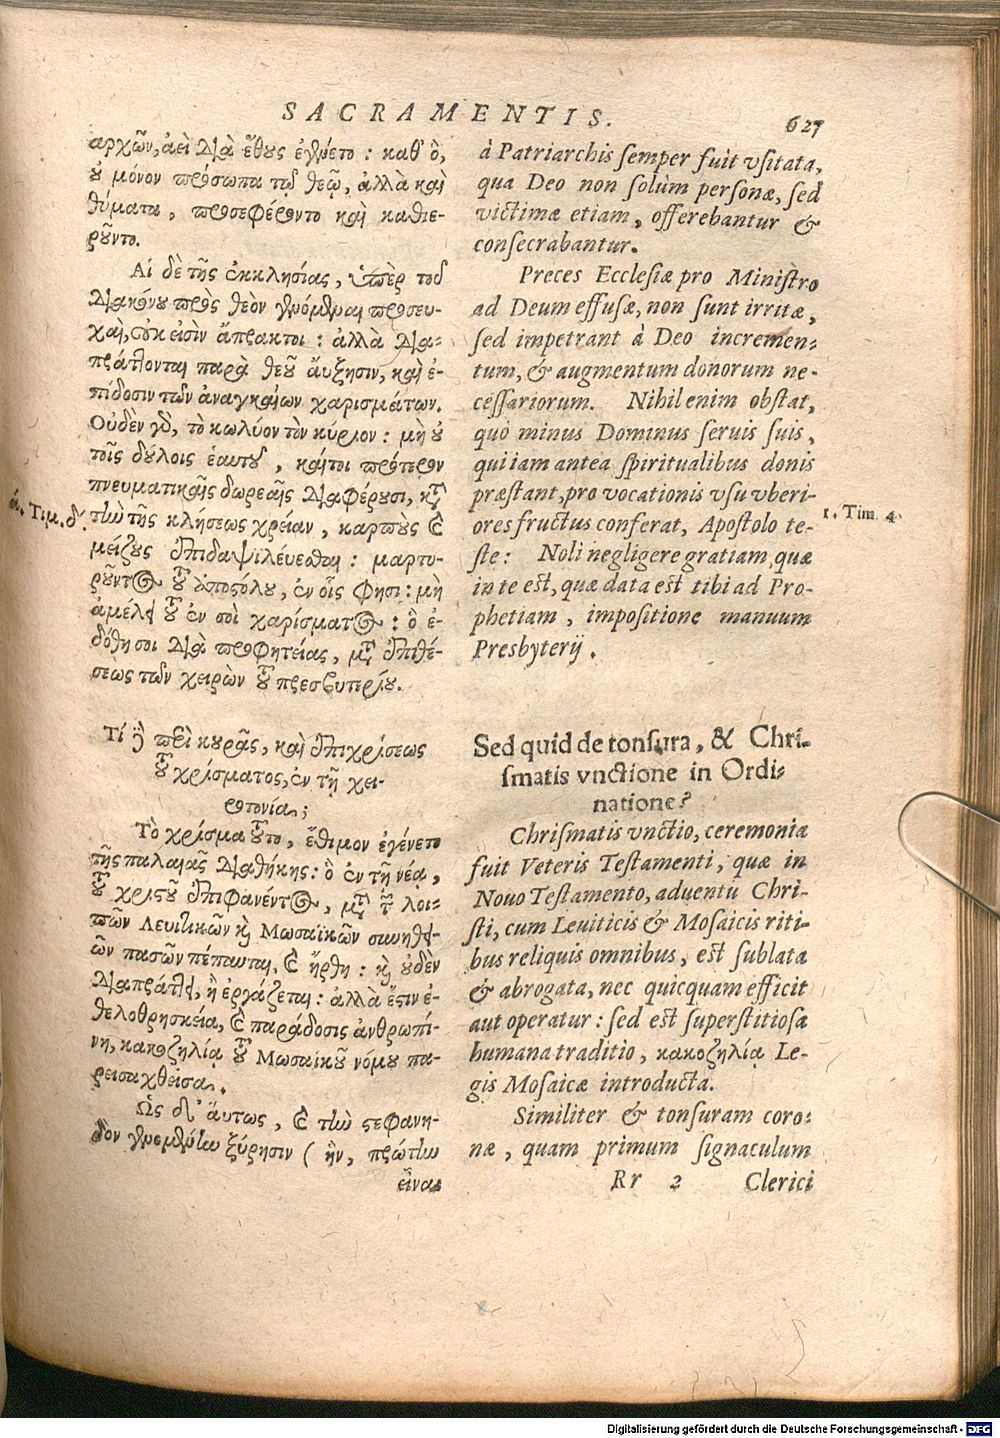 SACRAMENTIS.
627
αρχῶν, ἀεὶ διὰ ἔθους ἐγίνετο : καθ' ὃ,
οὐ μόνον πρόσωπα τῷ θεῷ, ἀλλὰ καὶ
θύματα, προσεφέροντο καὶ καθιε-
ροῦντο.
Αἱ δὲ τῆς ἐκκλησίας, ὑπὲρ τοῦ
διακόνου πρὸς θεὸν γενόμεναι προσευ-
χαὶ, οὐκ εἰσὶν ἄπρακτοι : ἀλλὰ δια-
πράττονται παρὰ θεοῦ ἄυξησιν, καὶ ἐ-
πίδοσιν τῶν ἀναγκαίων χαρισμάτων.
Οὐδὲν γὸ, τὸ κωλύον τὸν κύριον : μὴ οὐ
τοῖς δούλοις ἑαυτοῦ, καίτοι πρότερον
πνευματικαῖς δωρεαῖς διαφέρουσι, κατὰ
ά. Τιμ. δ'.
τὴν τῆς κλήσεως χρείαν, καρποὺς καὶ
μείζους ἐπιδαψιλεύεσθαι : μαρτυ-
ροῦντος τοῦ ἀποστόλου, ἐν οἷς φησι : μὴ
ἀμέλει τοῦ ἐν σοὶ χαρίσματος : ὃ ἐ-
δόθη σοι διὰ προφητείας, μετὰ ἐπιθέ-
σεως τῶν χειρῶν τοῦ πρεσβυτερίου.
Τί δὲ περὶ κουρᾶς, καὶ ἐπιχρίσεως
τοῦ χρίσματος, ἐν τῇ χει-
ροτονίᾳ;
Τὸ χρίσμα τοῦτο, ἔθιμον ἐγένετο
τῆς παλαιᾶς διαθήκης : ὃ ἐν τῇ νέᾳ,
τοῦ χριστοῦ ἐπιφανέντος, μετὰ τῶν λοι-
πῶν Λευιτικῶν καὶ Μωσαϊκῶν συνηθει-
ῶν πασῶν πέπαυται, καὶ ἤρθη : καὶ οὐδὲν
διαπράττει, ἢ ἐργάζεται : ἀλλὰ ἔστιν ἐ-
θελοθρησκεία, καὶ παράδοσις ἀνθρωπί-
νη, κακοζηλίᾳ τοῦ Μωσαϊκοῦ νόμου πα-
ρεισαχθεῖσα.
Ὡς δ' ἄυτως, καὶ τὴν στεφανη-
δὸν γενομένην ξύρησιν ( ἣν, πρώτην
εἶναι
à Patriarchis semper fuit vsitata,
qua Deo non solùm personæ, sed
victimæ etiam, offerebantur &
consecrabantur.
Preces Ecclesiæ pro Ministro
ad Deum effusæ, non sunt irritæ,
sed impetrant à Deo incremen-
tum, & augmentum donorum ne-
cessariorum. Nihil enim obstat,
quò minus Dominus seruis suis,
qui iam antea spiritualibus donis
præstant, pro vocationis vsu vberi-
ores fructus conferat, Apostolo te-
1. Tim. 4.
ste : Noli negligere gratiam, quæ
in te est, quæ data est tibi ad Pro-
phetiam, impositione manuum
Presbyterij.
Sed quid de tonsura, & Chri-
smatis vnctione in Ordi-
natione?
Chrismatis vnctio, ceremonia
fuit Veteris Testamenti, quæ in
Nouo Testamento, aduentu Chri-
sti, cum Leuiticis & Mosaicis riti-
bus reliquis omnibus, est sublata
& abrogata, nec quicquam efficit
aut operatur : sed est superstitiosa
humana traditio, κακοζηλίᾳ Le-
gis Mosaicæ introducta.
Similiter & tonsuram coro-
næ, quam primum signaculum
Rr 2 Clerici
Digitalisierung gefördert durch die Deutsche Forschungsgemeinschaft - DFG